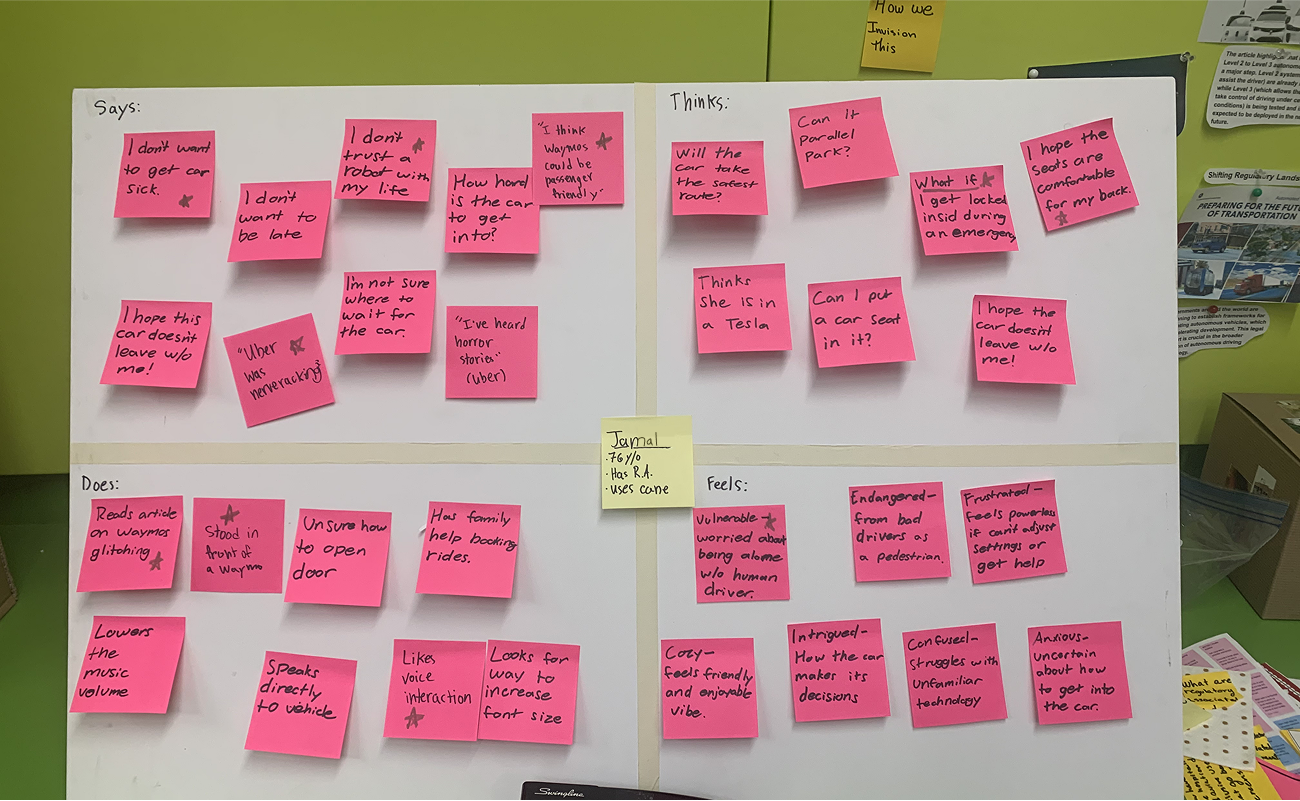 How we
Invision
this
Says:
I don't want
to get car
sick.
I don't
want to
be late
I don't
trust a
robot with
my life
How hard
is the car
to get
into?
"I think
Waymos
could be
passenger
friendly"
I hope this
car doesn't
leave w/o
me!
"Uber
was
nerveracking"
I'm not sure
where to
wait for
the car.
"I've heard
horror
stories"
(uber)
Thinks:
Will the
car take
the safest
route?
Can it
parallel
Park?
What if
I get locked
insid during
an emergency
I hope the
seats are
comfortable
for my back.
Thinks
she is in
a Tesla
Can I put
a car seat
in it?
I hope the
car doesn't
leave w/o
me!
Jamal
·76 y/o
·Has R.A.
·uses cane
Does:
Reads article
on waymos
glitching
Stood in
front of
a Waymo
Unsure how
to open
door
Has family
help booking
rides.
Lowers
the
music
volume
Speaks
directly
to vehicle
Likes
voice
interaction
Looks for
way to
increase
font size
Feels:
Vulnerable-
worried about
being alone
w/o human
driver.
Endangered-
from bad
drivers as
a pedestrian.
Frustrated-
feels powerless
if can't adjust
settings or
get help
Cozy-
feels friendly
and enjoyable
vibe.
Intrigued-
How the car
makes its
decisions
Confused-
struggles with
unfamiliar
technology
Anxious-
uncertain
about how
to get into
the car.
The article
Level 2 to Level 3
a major step. Level 2
assist the driver) are already
while Level 3 (which allows the
take control of driving under
conditions) is being tested and
expected to be deployed in the
future.
Shifting Regulatory
PREPARING FOR THE
OF TRANSPORTATION
the world are
to establish frameworks for
autonomous vehicles, which
development. This legal
is crucial in the broader
of autonomous driving
What are
regulatory
Swingline